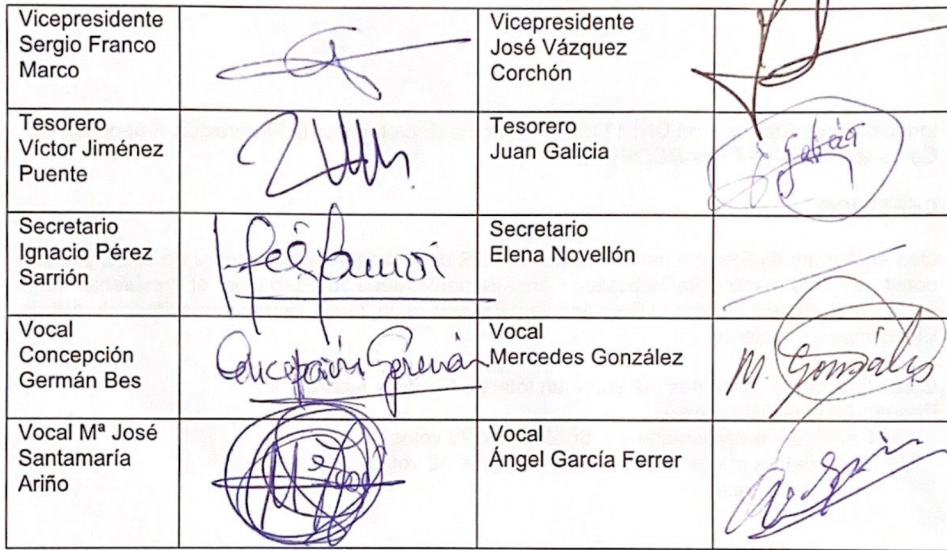 Vicepresidente
Sergio Franco
Marco
Vicepresidente
José Vázquez
Corchón
Tesorero
Víctor Jiménez
Puente
Tesorero
Juan Galicia
Secretario
Ignacio Pérez
Sarrión
Secretario
Elena Novellón
Vocal
Concepción
Germán Bes
Concepción Germán
Vocal
Mercedes González
M. González
Vocal Mª José
Santamaría
Ariño
Vocal
Ángel García Ferrer